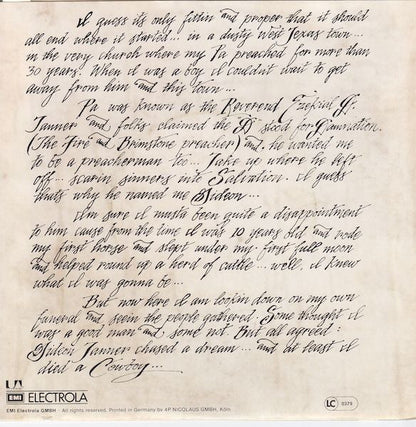 I guess its only fittin and proper that it should
all end where it started... in a dusty west Texas town...
in the very church where my Pa preached for more than
30 years. When I was a boy I couldn't wait to get
away from him and this town...
Pa was known as the Reverend Ezekial G.
Tanner and folks claimed the G stood for Damnation.
(The Fire and Brimstone preacher) and he wanted me
to be a preacherman too... Take up where he left
off... scarin sinners into Salvation. I guess
thats why he named me Gideon...
I'm sure I musta been quite a disappointment
to him cause from the time I was 10 years old and rode
my first horse and slept under my first full moon
and helped round up a herd of cattle... well, I knew
what I was gonna be...
But now here I am lookin down on my own
funeral and seein the people gathered. Some thought I
was a good man and some not. But all agreed:
Gideon Tanner chased a dream... and at least I
died a Cowboy...
UA
EMI ELECTROLA
EMI Electrola GMBH · All rights reserved. Printed in Germany by 4P NICOLAUS GMBH, Köln
LC 0379